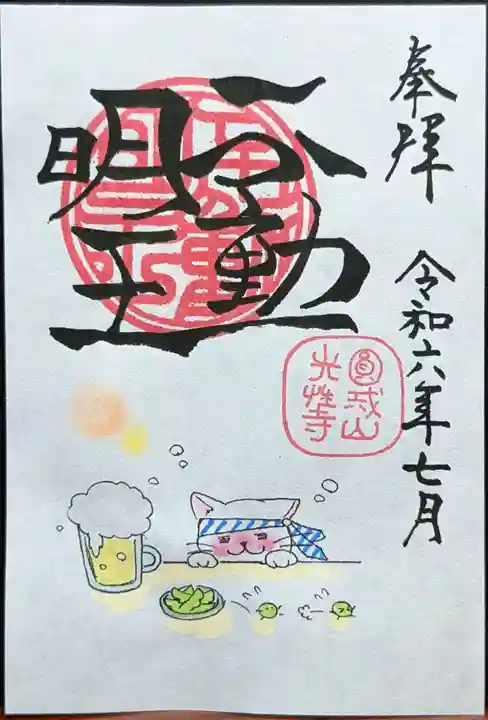 奉拝
令和六年七月
不動
明王
圓成山
光性寺